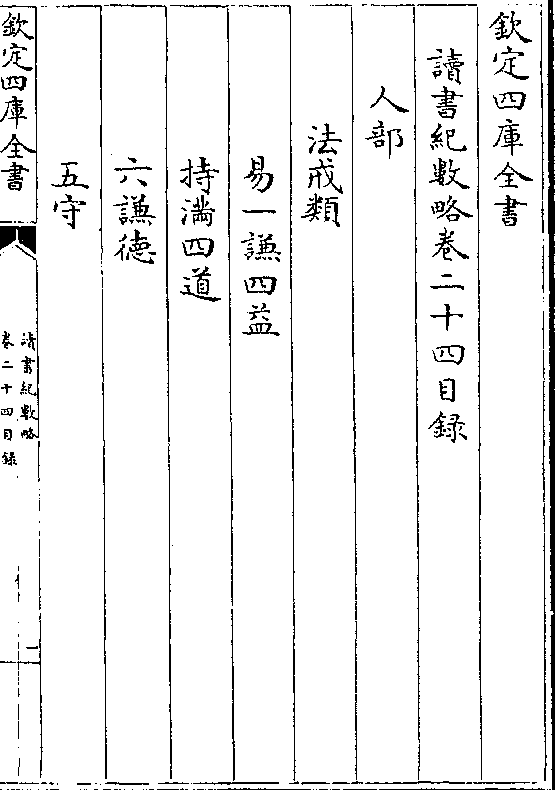 欽定四庫全書
讀書紀數略卷二十四目錄
人部
法戒類
易一謙四益
持満四道
六謙徳
五守
欽定四庫全書
讀書紀數略
卷二十四目錄
一